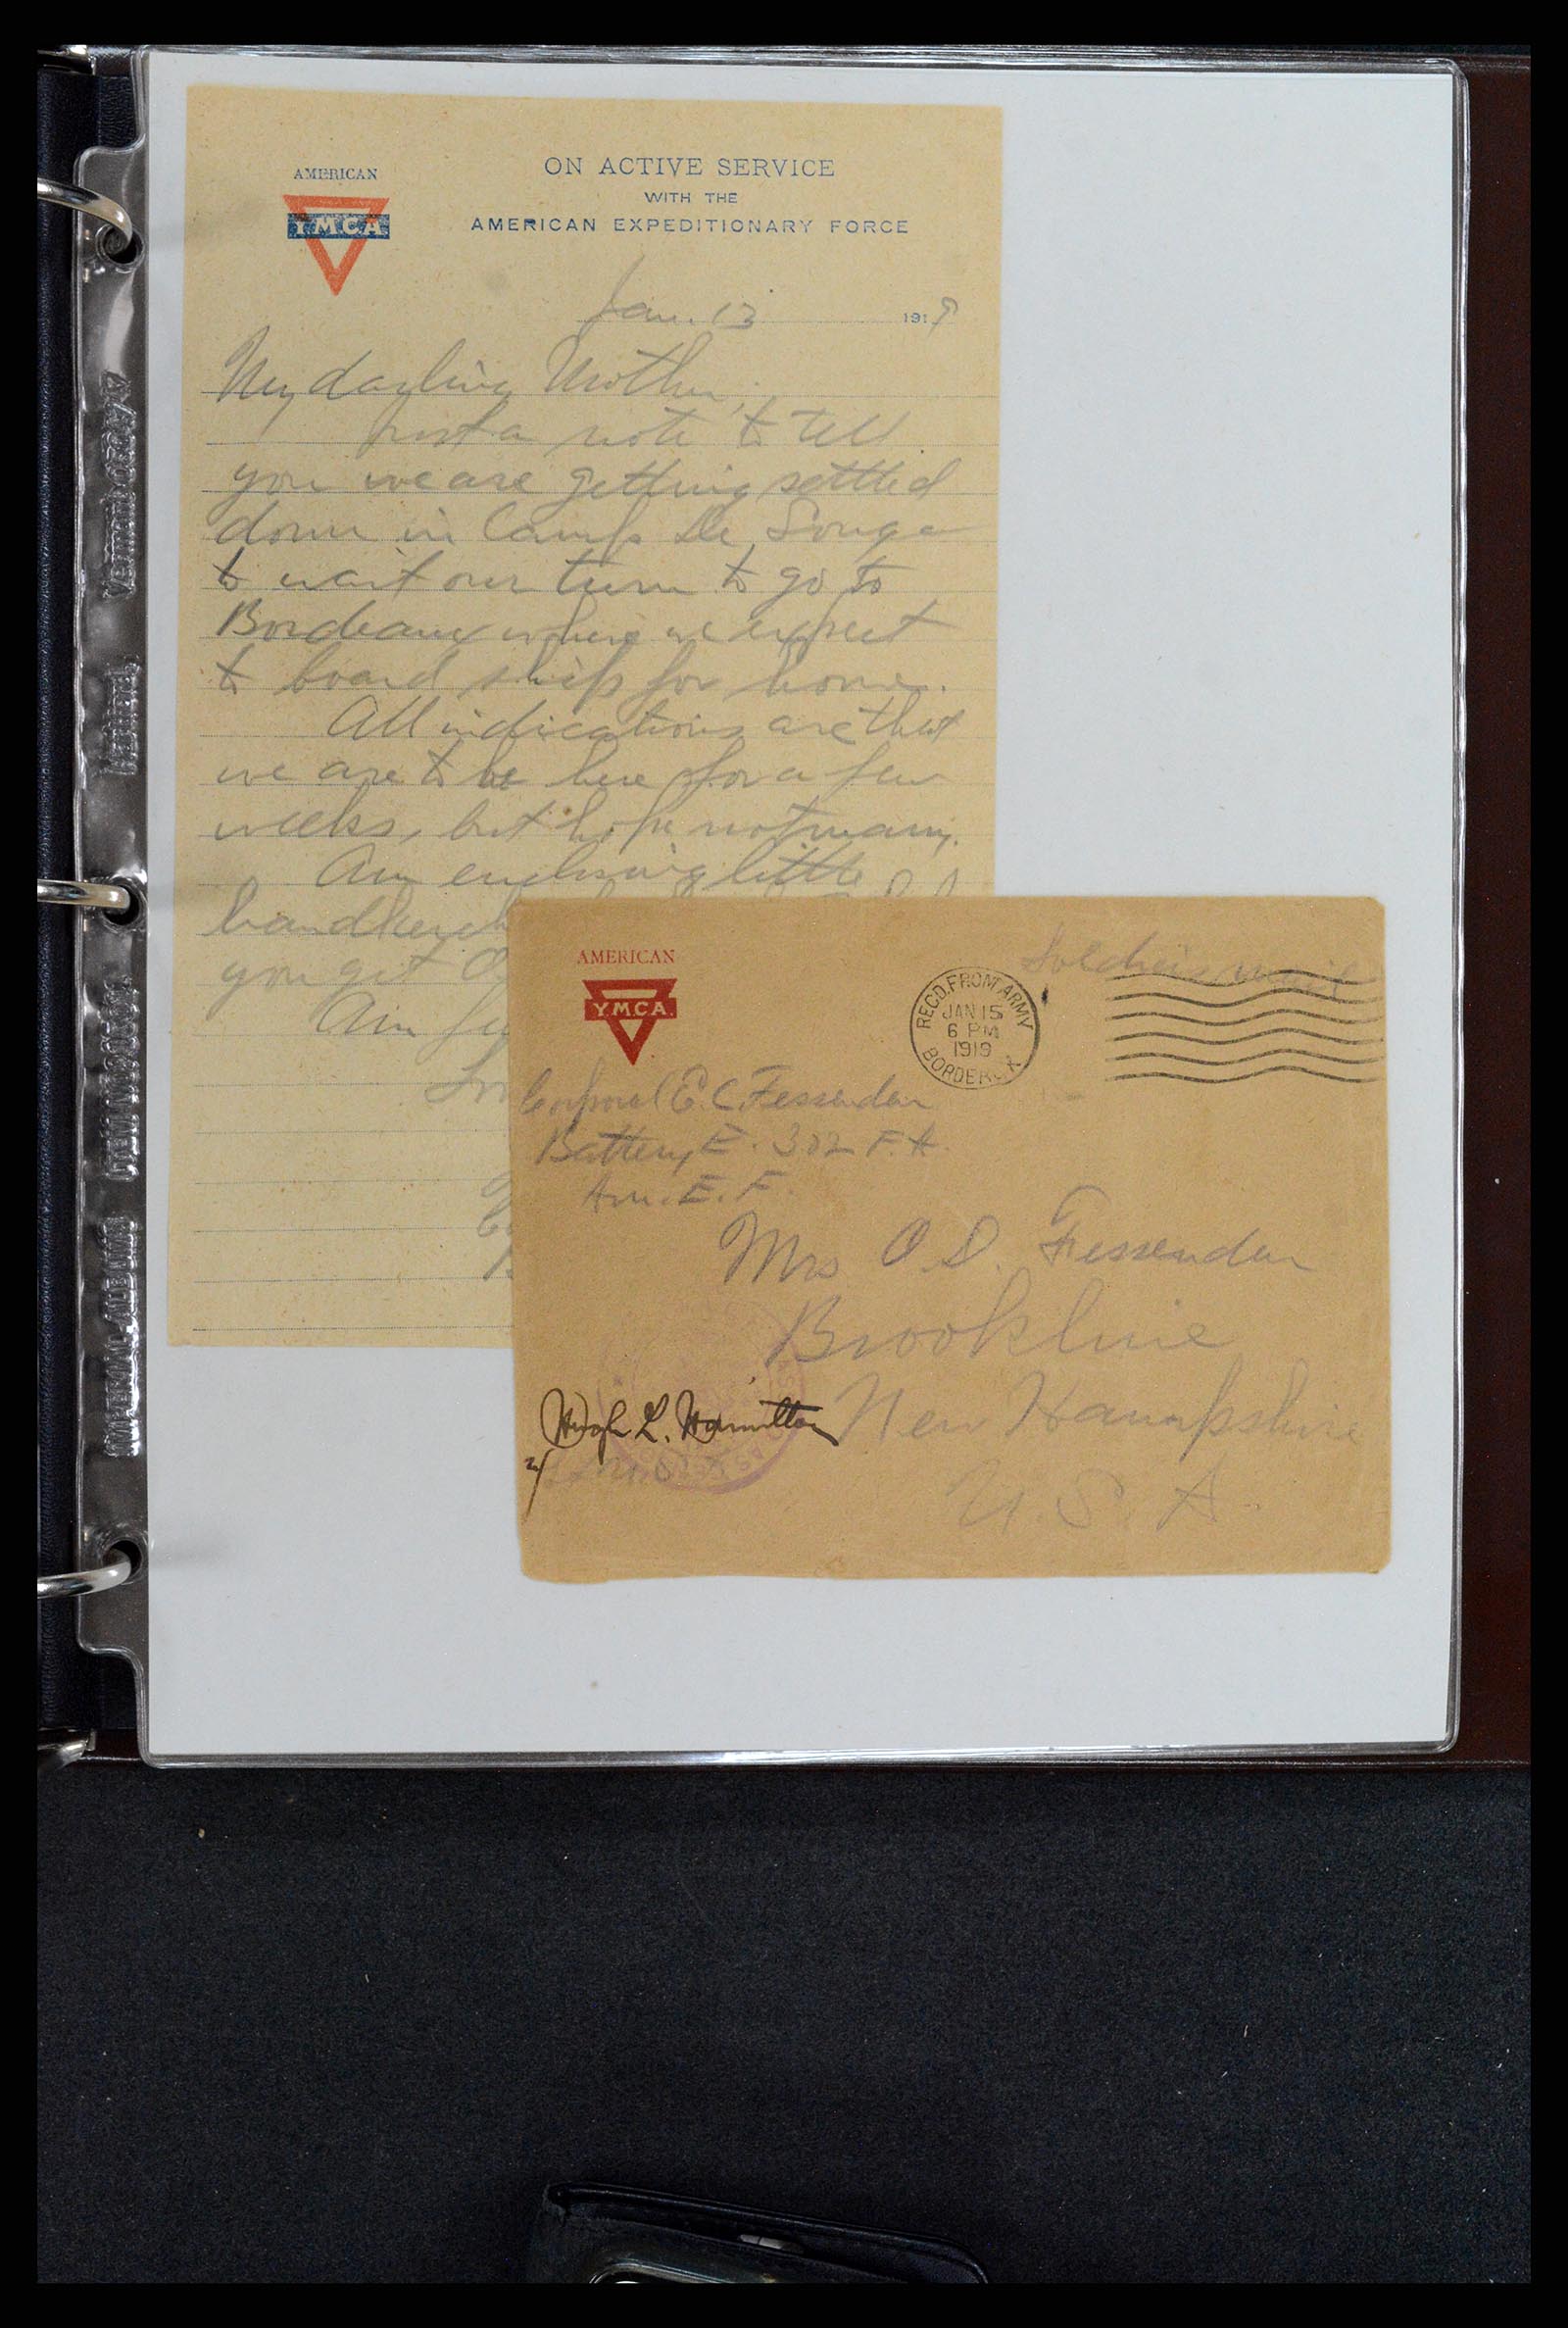 AMERICAN
Y.M.C.A.
ON ACTIVE SERVICE
WITH THE
AMERICAN EXPEDITIONARY FORCE
Jan. 13 1919
My darling Mother,
Just a note to tell
you we are getting settled
down in Camp De Souge
to wait our turn to go to
Bordeaux where we expect
to board ship for home.
All indications are that
we are to be here for a few
weeks, but hope not many.
Am enclosing little
handkerch
you get
Am
AMERICAN
Y.M.C.A.
Soldier's mail
REC'D. FROM ARMY
JAN 15
6 PM
1919
BORDE
Corporal E. C. Fessenden
Battery E. 302 F.A.
Am. E. F.
Mrs O. D. Fessenden
Brookline
New Hampshire
U. S. A.
Hugh L. Hamilton